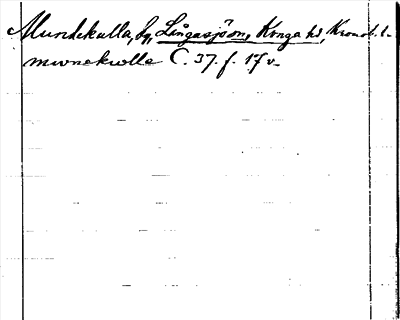 Mundekulla, by, Långasjö sn, Konga hd, Kronob. l.
mwnekwlla C. 37. f. 17 v.